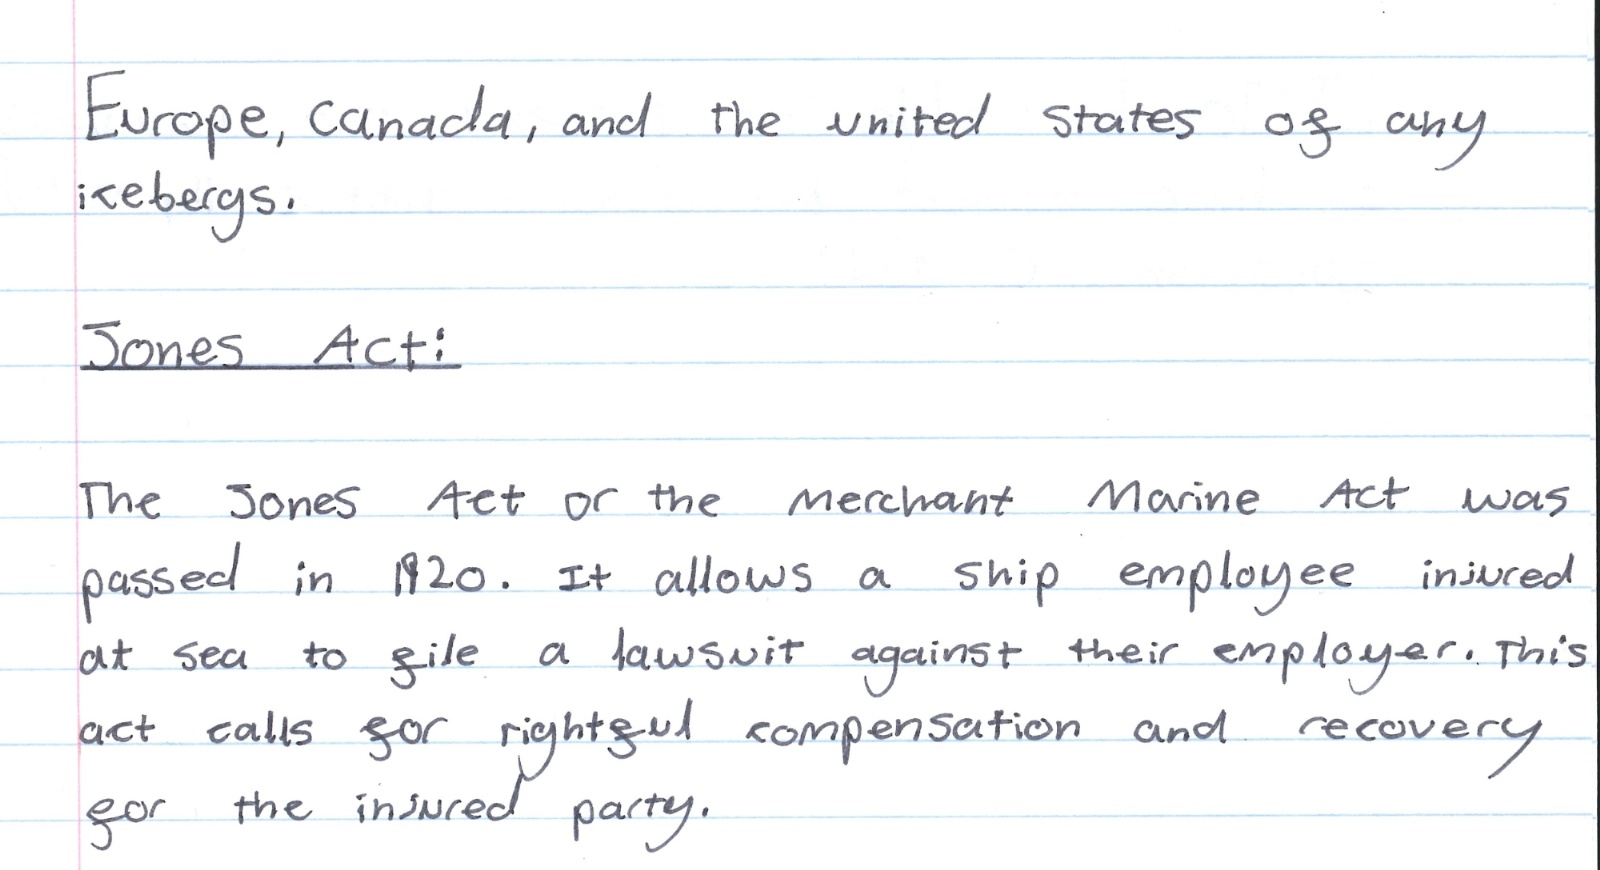 Europe, Canada, and the united States of any
icebergs.
Jones Act:
The Jones Act or the Merchant Marine Act was
passed in 1920. It allows a ship employee injured
at sea to file a lawsuit against their employer. This
act calls for rightful compensation and recovery
for the injured party.